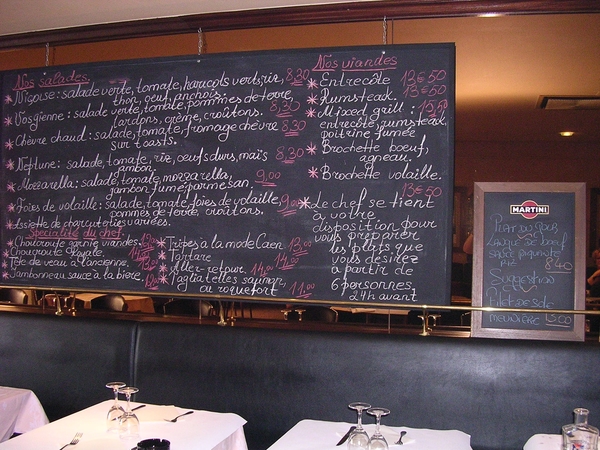 Nos salades.
Niçoise: salade verte, tomate, haricots verts, riz,
thon, oeuf, anchois. 8,30
Vosgienne: salade verte, tomate, pommes de terre,
lardons, crème, croûtons. 8,30
Chèvre chaud: salade, tomate, fromage chèvre 8,30
sur toasts.
Neptune: salade, tomate, riz, oeufs durs, maïs 8,30
jambon.
Mozzarella: salade, tomate mozzarella, 9,00
jambon fumé parmesan.
Foies de volaille: salade, tomate, foies de volaille, 9,00
pommes de terre, croûtons.
Assiette de charcuteries variées.
Spécialité du chef.
Choucroute garnie viandes.
Choucroute Royale.
Tête de veau à l'ancienne
Jambonneau sauce à la bière.
Tripes à la mode Caen 12,00
Tartare
Aller-retour. 14,00
Tagliatelles saumon
ou roquefort 11,00
Nos viandes
Entrecôte 13€50
Rumsteak. 13€50
Mixed grill: 15,50
entrecôte, rumsteak
poitrine fumée
Brochette boeuf,
agneau.
Brochette volaille.
13€50
Le chef se tient
à votre
disposition pour
vous préparer
les plats que
vous désirez
à partir de
6 personnes
24h avant
MARTINI
Plat du jour
Langue de boeuf
sauce piquante
8,40
Suggestion
Filet de sole
meunière 15,00